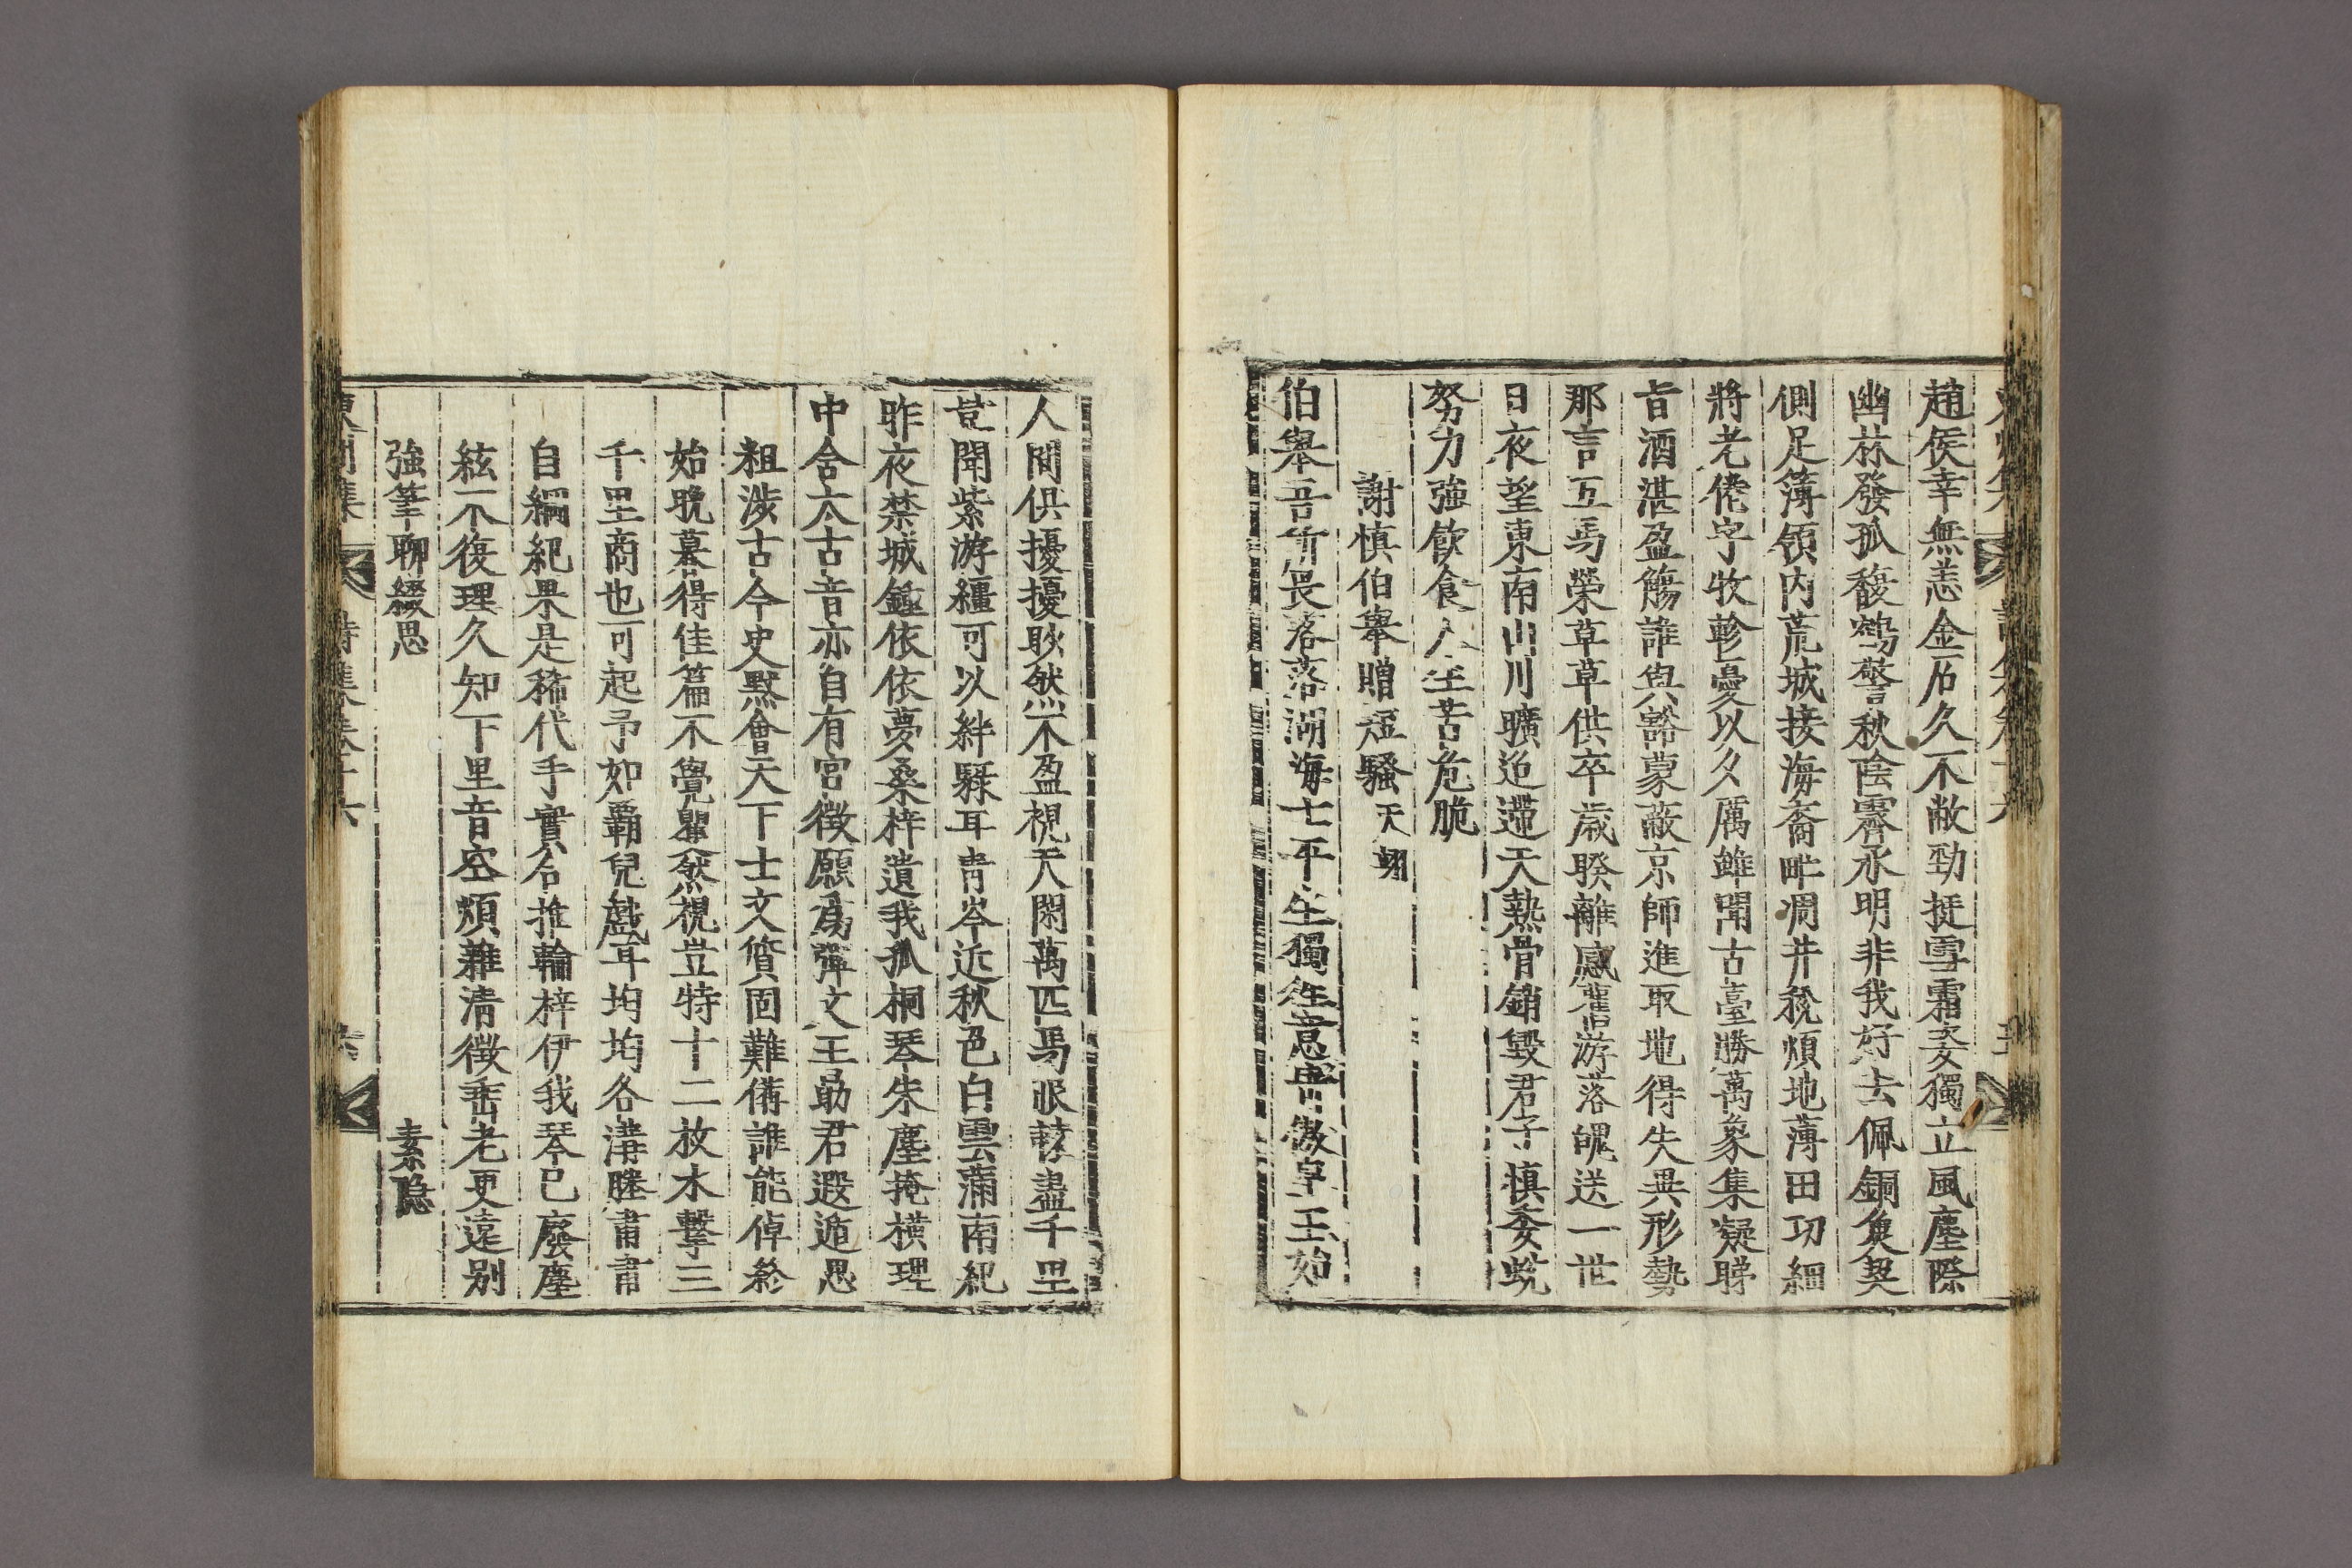 趙侯幸無恙金石久不敝勁挺雪霜姿獨立風塵際
幽林發孤馥鶴警秋陰霽承明非我好去佩銅魚契
側足簿領內荒城接海裔畔凋井稅煩地薄田功細
將老倦字牧軫憂以久厲雖聞古臺勝萬象集凝睇
旨酒湛盈觴誰與豁蒙蔽京師進取地得失異形勢
那言五馬榮草草供卒歲睽離感舊游落魄送一世
日夜望東南山川曠迢遰天熱骨銷毀君子愼委蛻
努力強飮食人生苦危脆
謝愼伯擧贈短騷 天翊
伯擧吾所畏落落湖海士平生獨往意靑傲皁王始
人間俱擾擾耿然不盈視天閑萬匹馬眼花盡千里
豈聞紫游韁可以絆騄耳靑岑近秋色白雲滿南紀
昨夜禁城鍾依依夢桑梓遺我孤桐琴朱塵掩橫理
中含太古音亦自有宮徵願爲彈文王勗君遐遁思
粗涉古今史默會天下士文質固難備誰能倬終
始晩暮得佳篇不覺犂然視豈特十二枚木擊三
千里商也可起予如覇兒戱耳畇畇各溝塍肅肅
自綱紀果是稀代手實合推輪梓伊我琴已廢塵
絃不復理久知下里音空煩雜淸徵垂老更遠別
強筆聊綴思 素隱
東州集 詩集卷十六 六